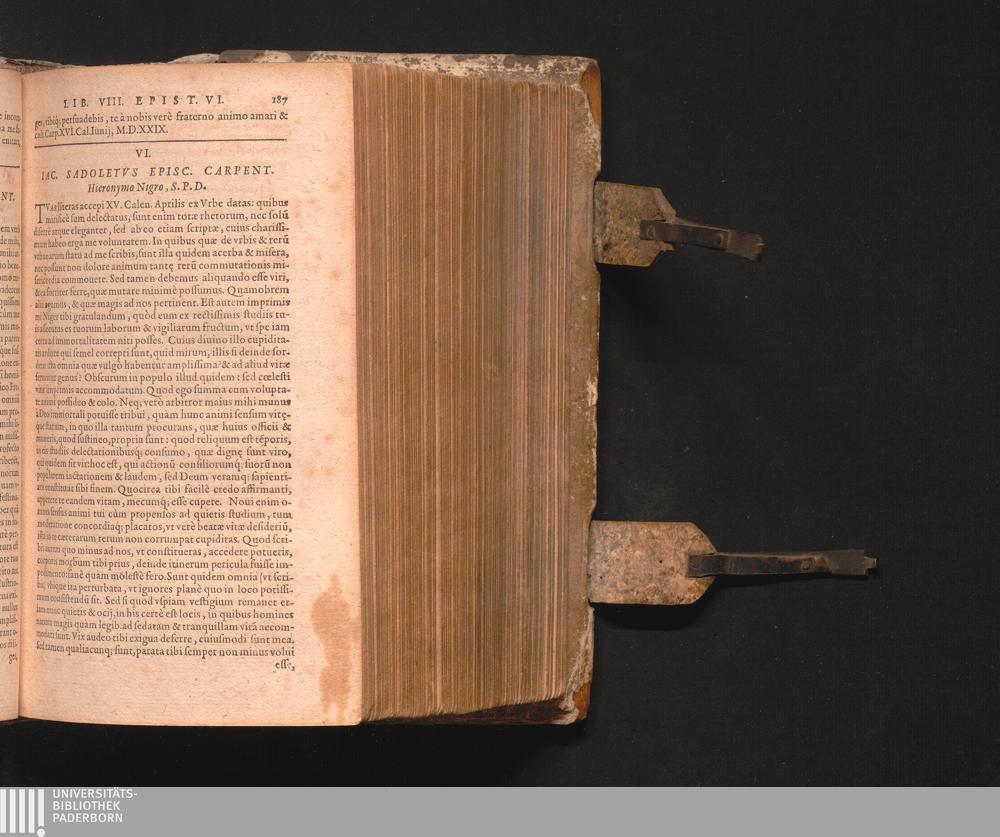 LIB. VIII. EPIST. VI. 187
ges, tibiq; persuadebis, te à nobis verè fraterno animo amari &
coli. Carp. XVI. Cal. Iunij, M.D.XXIX.
VI.
IAC. SADOLETVS EPISC. CARPENT.
Hieronymo Nigro, S. P. D.
TVas literas accepi XV. Calen. Aprilis ex Vrbe datas: quibus
mirificè sum delectatus, sunt enim totæ rhetorum, nec solũ
disertè atque eleganter, sed ab eo etiam scriptæ, cuius charissi-
mam habeo erga me voluntatem. In quibus quæ de vrbis & rerũ
vrbanarum statu ad me scribis, sunt illa quidem acerba & misera,
nec possunt non dolore animum tantę rerũ commutationis mi-
sericordia commouere. Sed tamen debemus aliquando esse viri,
& ea fortiter ferre, quæ mutare minimè possumus. Quamobrem
alia agamus, & quæ magis ad nos pertinent. Est autem imprimis
mi Niger tibi gratulandum, quòd eum ex rectissimis studiis tu-
is assecutus es tuorum laborum & vigiliarum fructum, vt spe iam
certa ad immortalitatem niti posses. Cuius diuino illo cupidita-
tis ardore qui semel correpti sunt, quid mirum, illis si deinde sor-
dent ista omnia quæ vulgò habentur amplissima? & ad aliud vitæ
feruntur genus? Obscurum in populo illud quidem: sed cœlesti
vitæ imprimis accommodatum. Quod ego summa cum volupta-
te animi possideo & colo. Neq; verò arbitror maius mihi munus
à Deo immortali potuisse tribui, quàm hunc animi sensum vitę-
que statum, in quo illa tantum procurans, quæ huius officii &
muneris, quod sustineo, propria sunt: quod reliquum est tẽporis,
in eis studiis delectationibusq; consumo, quæ dignę sunt viro,
qui quidem sit vir: hoc est, qui actionũ consiliorumq; suorũ non
popularem iactationem & laudem, sed Deum veramq; sapienti-
am constituat sibi finem. Quocirca tibi facilè credo affirmanti,
appetere te eandem vitam, mecumq; esse cupere. Noui enim o-
mnes sensus animi tui cùm propensos ad quietis studium, tum
moderatione concordiaq; placatos, vt verè beatæ vitæ desideriũ,
ista in te cæterarum rerum non corrumpat cupiditas. Quod scri-
bis autem quo minus ad nos, vt constitueras, accedere potueris,
corporis morbum tibi prius, deinde itinerum pericula fuisse im-
pedimento: sanè quàm molestè fero. Sunt quidem omnia (vt scri-
bis) vbique ita perturbata, vt ignores planè quo in loco potissi-
mum consistendũ sit. Sed si quod vspiam vestigium remanet et-
iam nunc quietis & ocij, in his certè est locis, in quibus homines
natura magis quàm legib. ad sedatam & tranquillam vitã accom-
modati sunt. Vix audeo tibi exigua deferre, cuiusmodi sunt mea.
Sed tamen qualiacunq; sunt, parata tibi semper non minus volui
esse,
UNIVERSITÄTS-
BIBLIOTHEK
PADERBORN